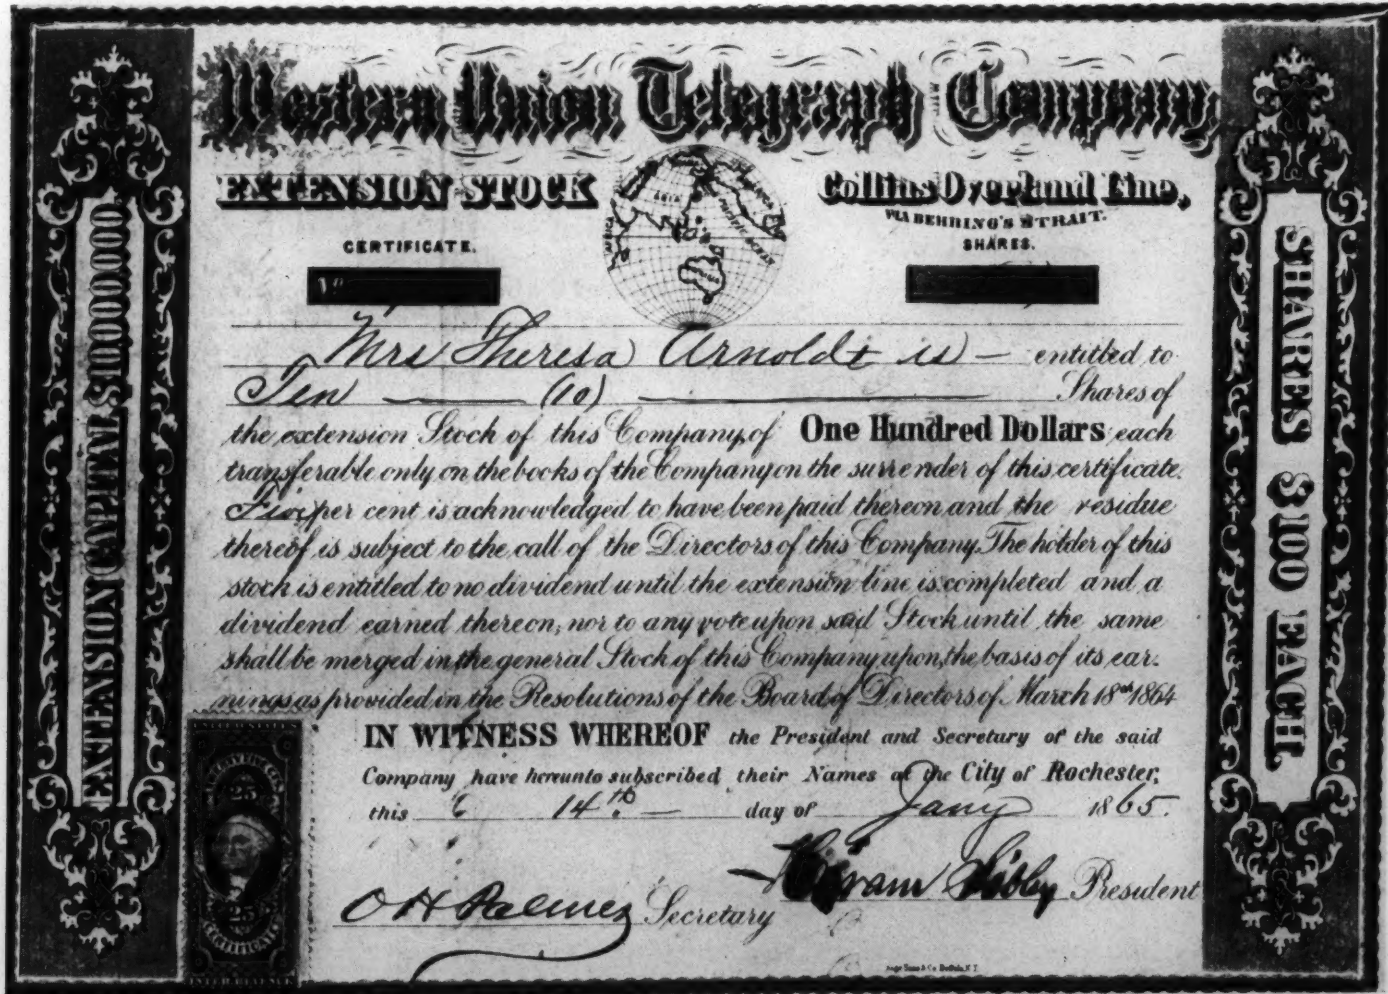 Western Union Telegraph Company
EXTENSION STOCK
Collins Overland Line,
VIA BEHRING'S STRAIT.
CERTIFICATE.
SHARES.
ASIA
AFRICA
PACIFIC OCEAN
No
Mrs Theresa Arnoldt is — entitled to
Ten —— (10) —— Shares of
the extension Stock of this Company, of One Hundred Dollars each
transferable only on the books of the Company on the surrender of this certificate.
Five per cent is acknowledged to have been paid thereon and the residue
thereof is subject to the call of the Directors of this Company. The holder of this
stock is entitled to no dividend until the extension line is completed and a
dividend earned thereon, nor to any vote upon said Stock until the same
shall be merged in the general Stock of this Company upon the basis of its ear-
nings as provided in the Resolutions of the Board of Directors of March 18th 1864
IN WITNESS WHEREOF the President and Secretary of the said
Company have hereunto subscribed their Names at the City of Rochester,
this 14th — day of Jany 1865.
Hiram Sibley President
O H Palmer Secretary
EXTENSION CAPITAL $10,000,000
SHARES $100 EACH.
25
25
CERTIFICATE